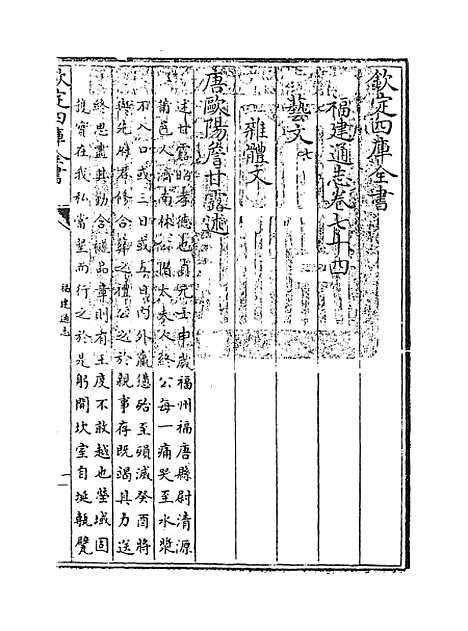 欽定四庫全書
福建通志卷七十四
藝文七
雜體文
唐歐陽詹甘露述
述甘露昭孝德也貞元壬申歲福州福唐縣尉清源
莆邑人濟南林公
太夫人終公每一痛哭至水漿
不入口或三日或五日內外羸憊殆至頭滅癸酉將
與先府君修合葬之禮公之於親事存既竭其力送
終思盡其勤含禭品章則有王度不敢越也塋域固
護實在我私當堅而行之於是躬開坎室自埏執甓
欽定四庫全書
福建通志
一